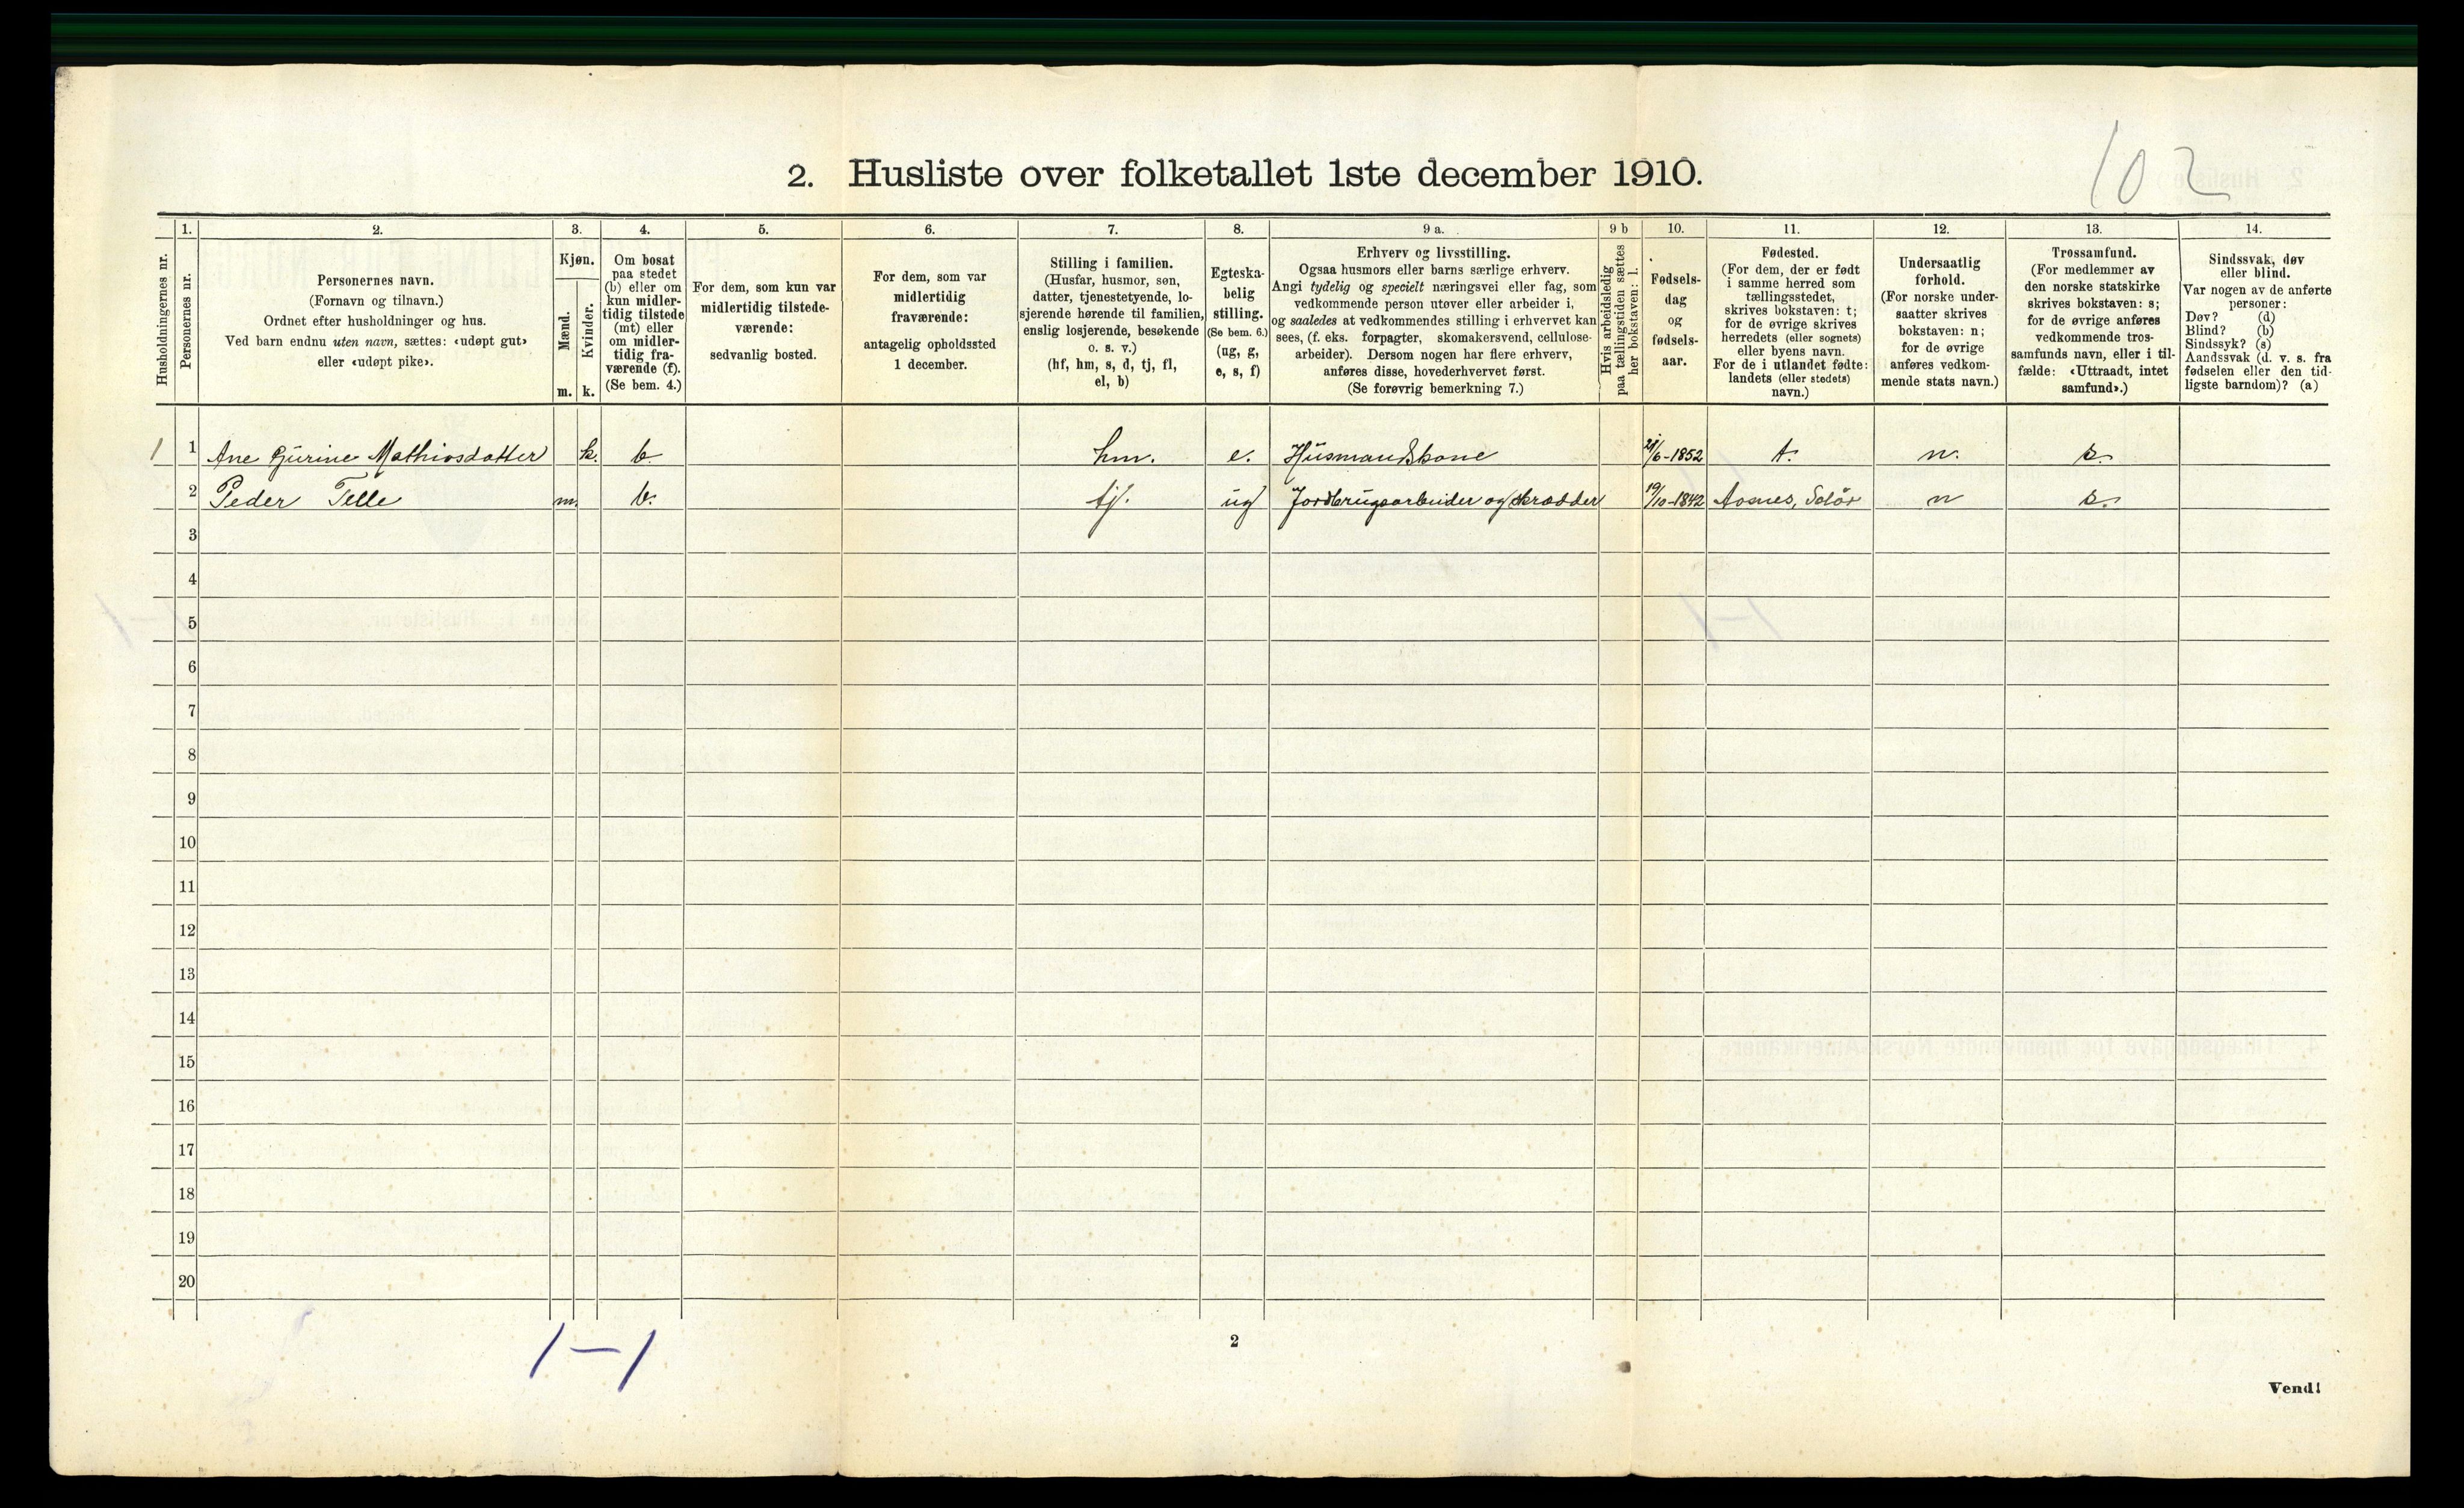 102
2. Husliste over folketallet 1ste december 1910.
Husholdningernes nr.
1.
Personernes nr.
2.
Personernes navn.
(Fornavn og tilnavn.)
Ordnet efter husholdninger og hus.
Ved barn endnu uten navn, sættes: «udøpt gut»
eller «udøpt pike».
3.
Kjøn.
Mænd.
m.
Kvinder.
k.
4.
Om bosat
paa stedet
(b) eller om
kun midler-
tidig tilstede
(mt) eller
om midler-
tidig fra-
værende (f).
(Se bem. 4.)
5.
For dem, som kun var
midlertidig tilstede-
værende:
sedvanlig bosted.
6.
For dem, som var
midlertidig
fraværende:
antagelig opholdssted
1 december.
7.
Stilling i familien.
(Husfar, husmor, søn,
datter, tjenestetyende, lo-
sjerende hørende til familien,
enslig losjerende, besøkende
o. s. v.)
(hf, hm, s, d, tj, fl,
el, b)
8.
Egteska-
belig
stilling.
(Se bem. 6.)
(ug, g,
e, s, f)
9 a.
Erhverv og livsstilling.
Ogsaa husmors eller barns særlige erhverv.
Angi tydelig og specielt næringsvei eller fag, som
vedkommende person utøver eller arbeider i,
og saaledes at vedkommendes stilling i erhvervet kan
sees, (f. eks. forpagter, skomakersvend, cellulose-
arbeider). Dersom nogen har flere erhverv,
anføres disse, hovederhvervet først.
(Se forøvrig bemerkning 7.)
9 b
Hvis arbeidsledig
paa tællingstiden sættes
her bokstaven: l.
10.
Fødsels-
dag
og
fødsels-
aar.
11.
Fødested.
(For dem, der er født
i samme herred som
tællingsstedet,
skrives bokstaven: t;
for de øvrige skrives
herredets (eller sognets)
eller byens navn.
For de i utlandet fødte:
landets (eller stedets)
navn.)
12.
Undersaatlig
forhold.
(For norske under-
saatter skrives
bokstaven: n;
for de øvrige
anføres vedkom-
mende stats navn.)
13.
Trossamfund.
(For medlemmer av
den norske statskirke
skrives bokstaven: s;
for de øvrige anføres
vedkommende tros-
samfunds navn, eller i til-
fælde: «Uttraadt, intet
samfund».)
14.
Sindssvak, døv
eller blind.
Var nogen av de anførte
personer:
Døv? (d)
Blind? (b)
Sindssyk? (s)
Aandssvak (d. v. s. fra
fødselen eller den tid-
ligste barndom)? (a)
1 1 Ane Gurine Mathiosdatter k. b. hm. e. Husmandskone /6-1852 t. n. s.
2 Peder Telle m. b. tj. ug Jordbrugsarbeider og skrædder 19/10-1842 Aosnes, Solör n s.
3
4
5
6
7
8
9
10
11
12
13
14
15
16
17
18
19
20
1-1
2
Vend!